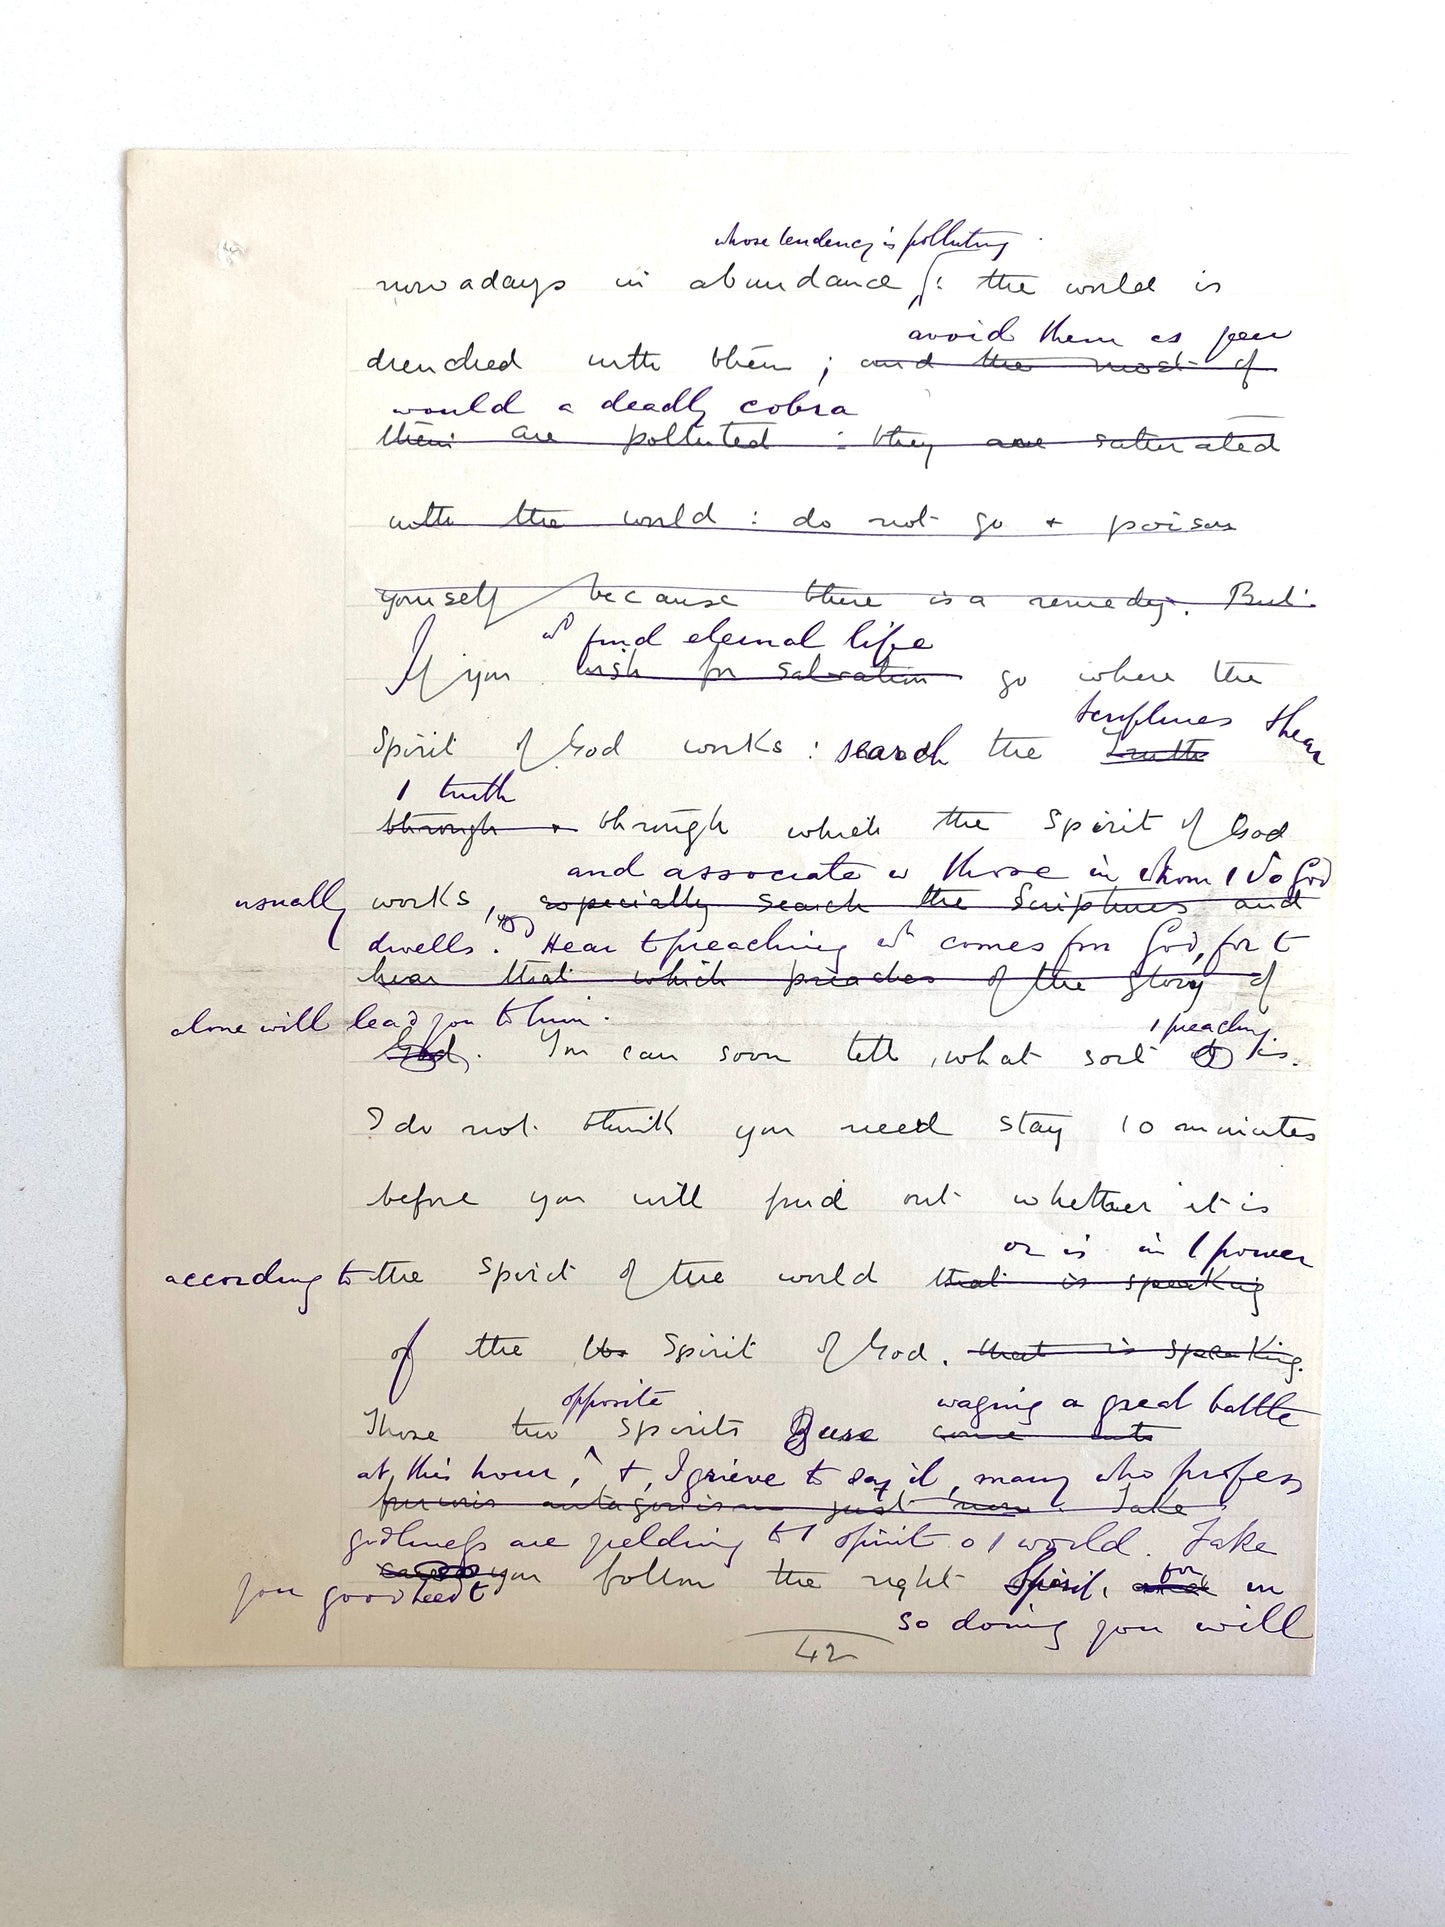 whose tendency is polluting
nowadays in abundance : the world is
avoid them as you
drenched with them ; and the most of
would a deadly cobra
them are polluted : they are saturated
with the world : do not go + poison
yourself because there is a remedy. But
wd find eternal life
If you wish for salvation go where the
Scriptures & hear
Spirit of God works : search the Truth
/ truth
through + through which the Spirit of God
and associate w those in whom / S o God
usually works, especially search the Scriptures and
dwells. Hear t preaching wh comes from God, for t
hear that which preaches of the glory of
alone will lead you to him.
God. You can soon tell what sort / preaching is.
I do not think you need stay 10 minutes
before you will find out whether it is
or is in / power
according to the spirit of the world that is speaking
of the Spirit of God. that is speaking.
opposite waging a great battle
Those two spirits are come into
at this hour, + , I grieve to say it, many who profess
furious antagonism just now. Take
godliness are yielding to / spirit o / world. Take
you good heed t you follow the right Spirit, for in
so doing you will
42